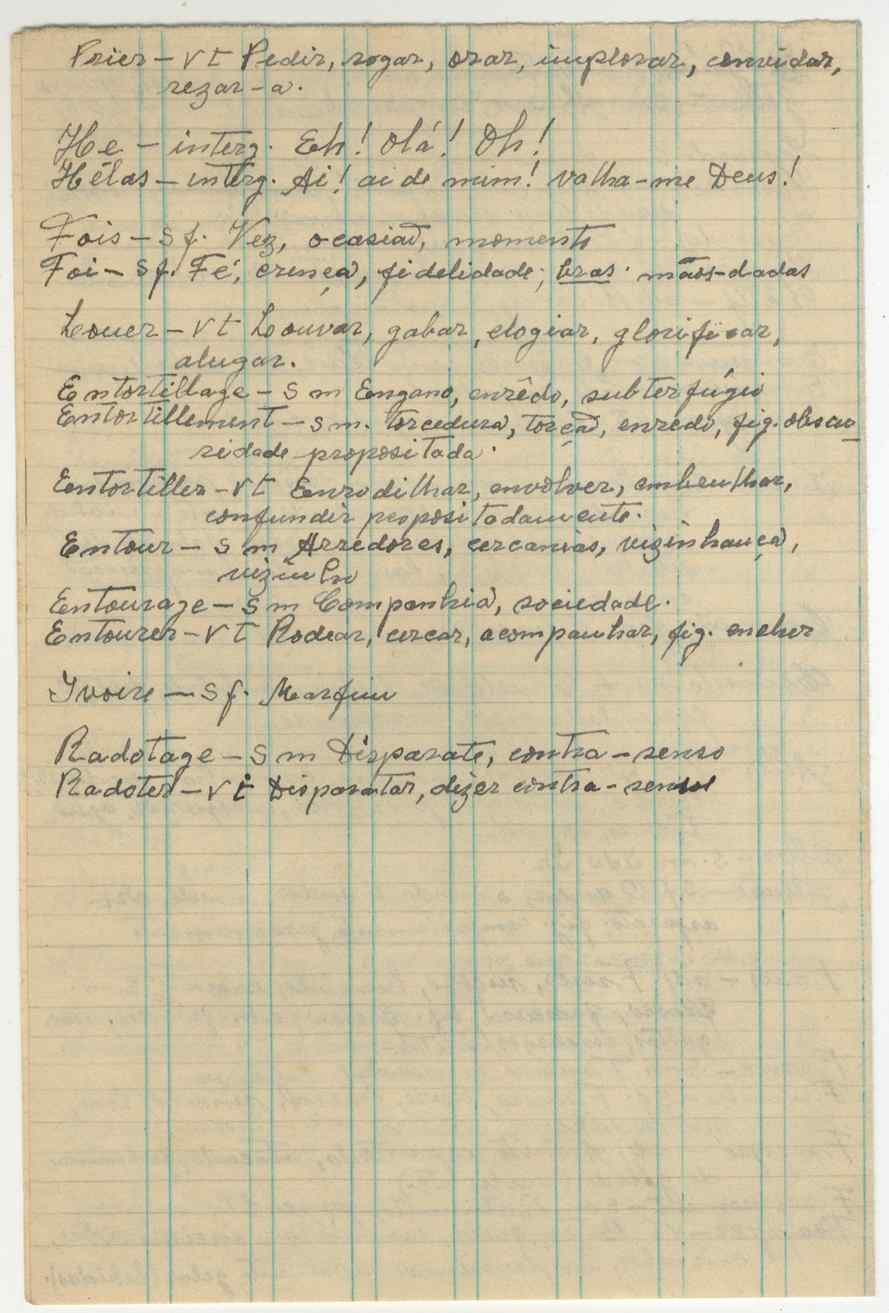 Prier – v t Pedir, rogar, orar, implorar, convidar,
rezar-a.
He – interj. Eh! Olá! Oh!
Hélas – interj. Ai! ai de mim! valha-me Deus!
Fois – s f. Vez, ocasião, momento
Foi – s f. Fé, crença, fidelidade; bras. mãos-dadas
Louer – v t Louvar, gabar, elogiar, glorificar,
alugar.
Entortillage – s m Engano, enrêdo, subterfúgio
Entortillement – s m. torcedura, torção, enredo, fig. obscu
ridade propositada.
Entortiller – v t Enrodilhar, envolver, embrulhar,
confundir propositadamente.
Entour – s m Arredores, cercanias, vizinhança,
vizinho
Entourage – s m Companhia, sociedade.
Entourer – v t Rodear, cercar, acompanhar, fig. encher
Ivoire – s f. Marfim
Radotage – s m Disparate, contra-senso
Radoter – v t Disparatar, dizer contra-senso